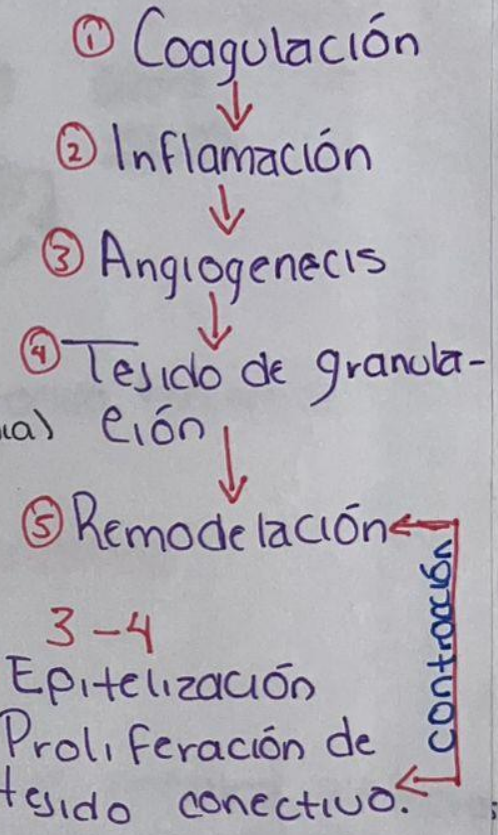 ① Coagulación
② Inflamación
③ Angiogenecis
④ Tesido de granula-
ción
⑤ Remodelación
contracción
3-4
Epitelización
Proliferación de
tesido conectivo.